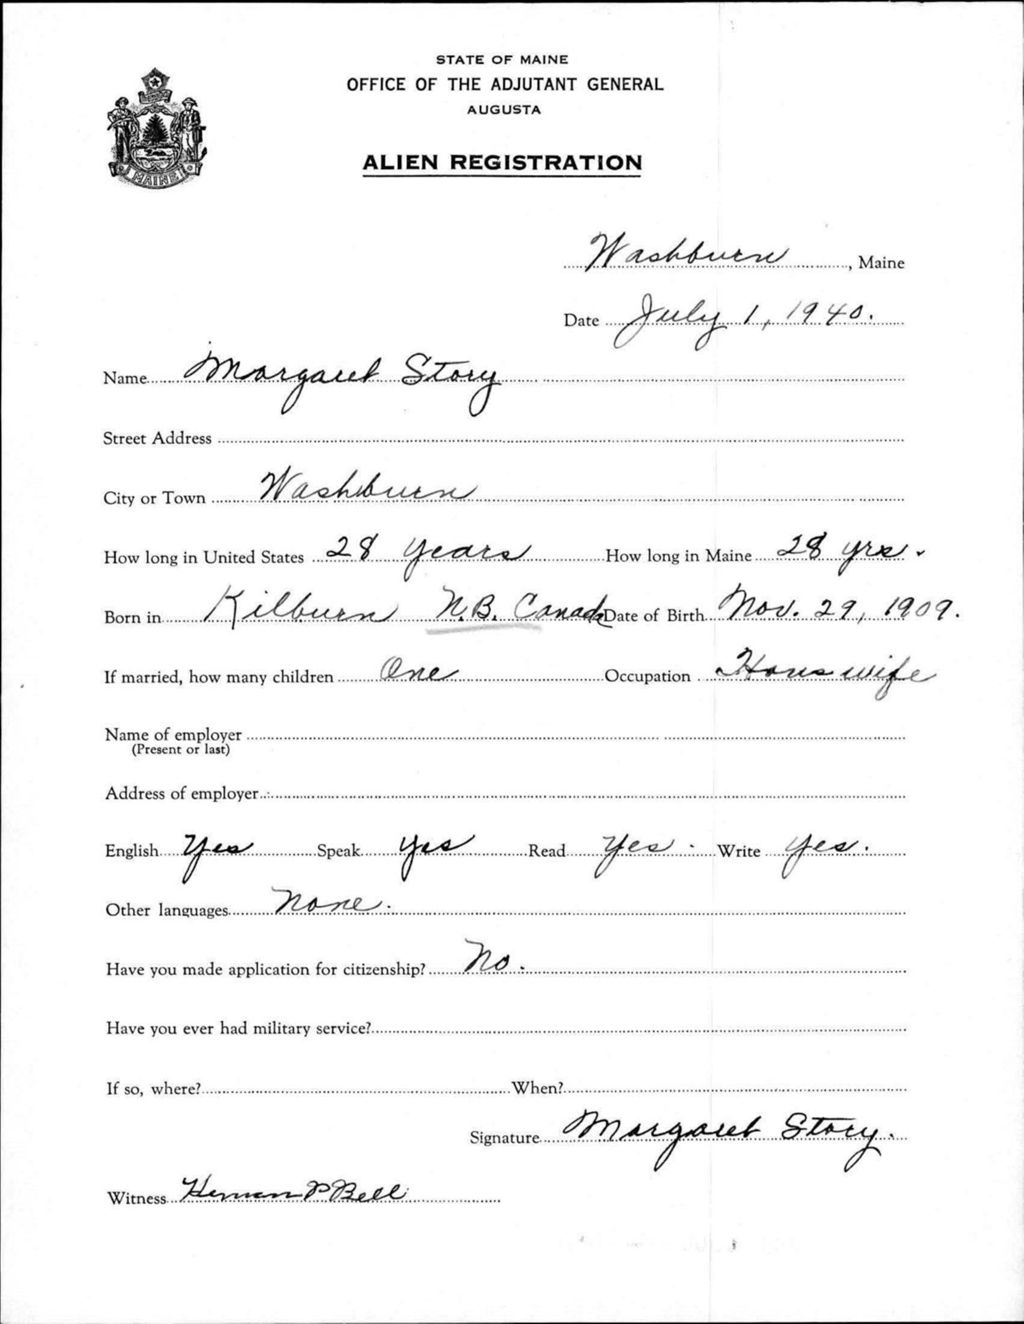 STATE OF MAINE
OFFICE OF THE ADJUTANT GENERAL
AUGUSTA
ALIEN REGISTRATION
MAINE
Washburn, Maine
Date July 1, 1940.
Name Margaret Story
Street Address
City or Town Washburn
How long in United States 28 years How long in Maine 28 yrs.
Born in Kilburn N.B. Canada Date of Birth Nov. 29, 1909.
If married, how many children One Occupation Housewife
Name of employer
(Present or last)
Address of employer
English Yes Speak Yes Read Yes Write Yes.
Other languages None.
Have you made application for citizenship? No.
Have you ever had military service?
If so, where? When?
Signature Margaret Story.
Witness Herman P Bell